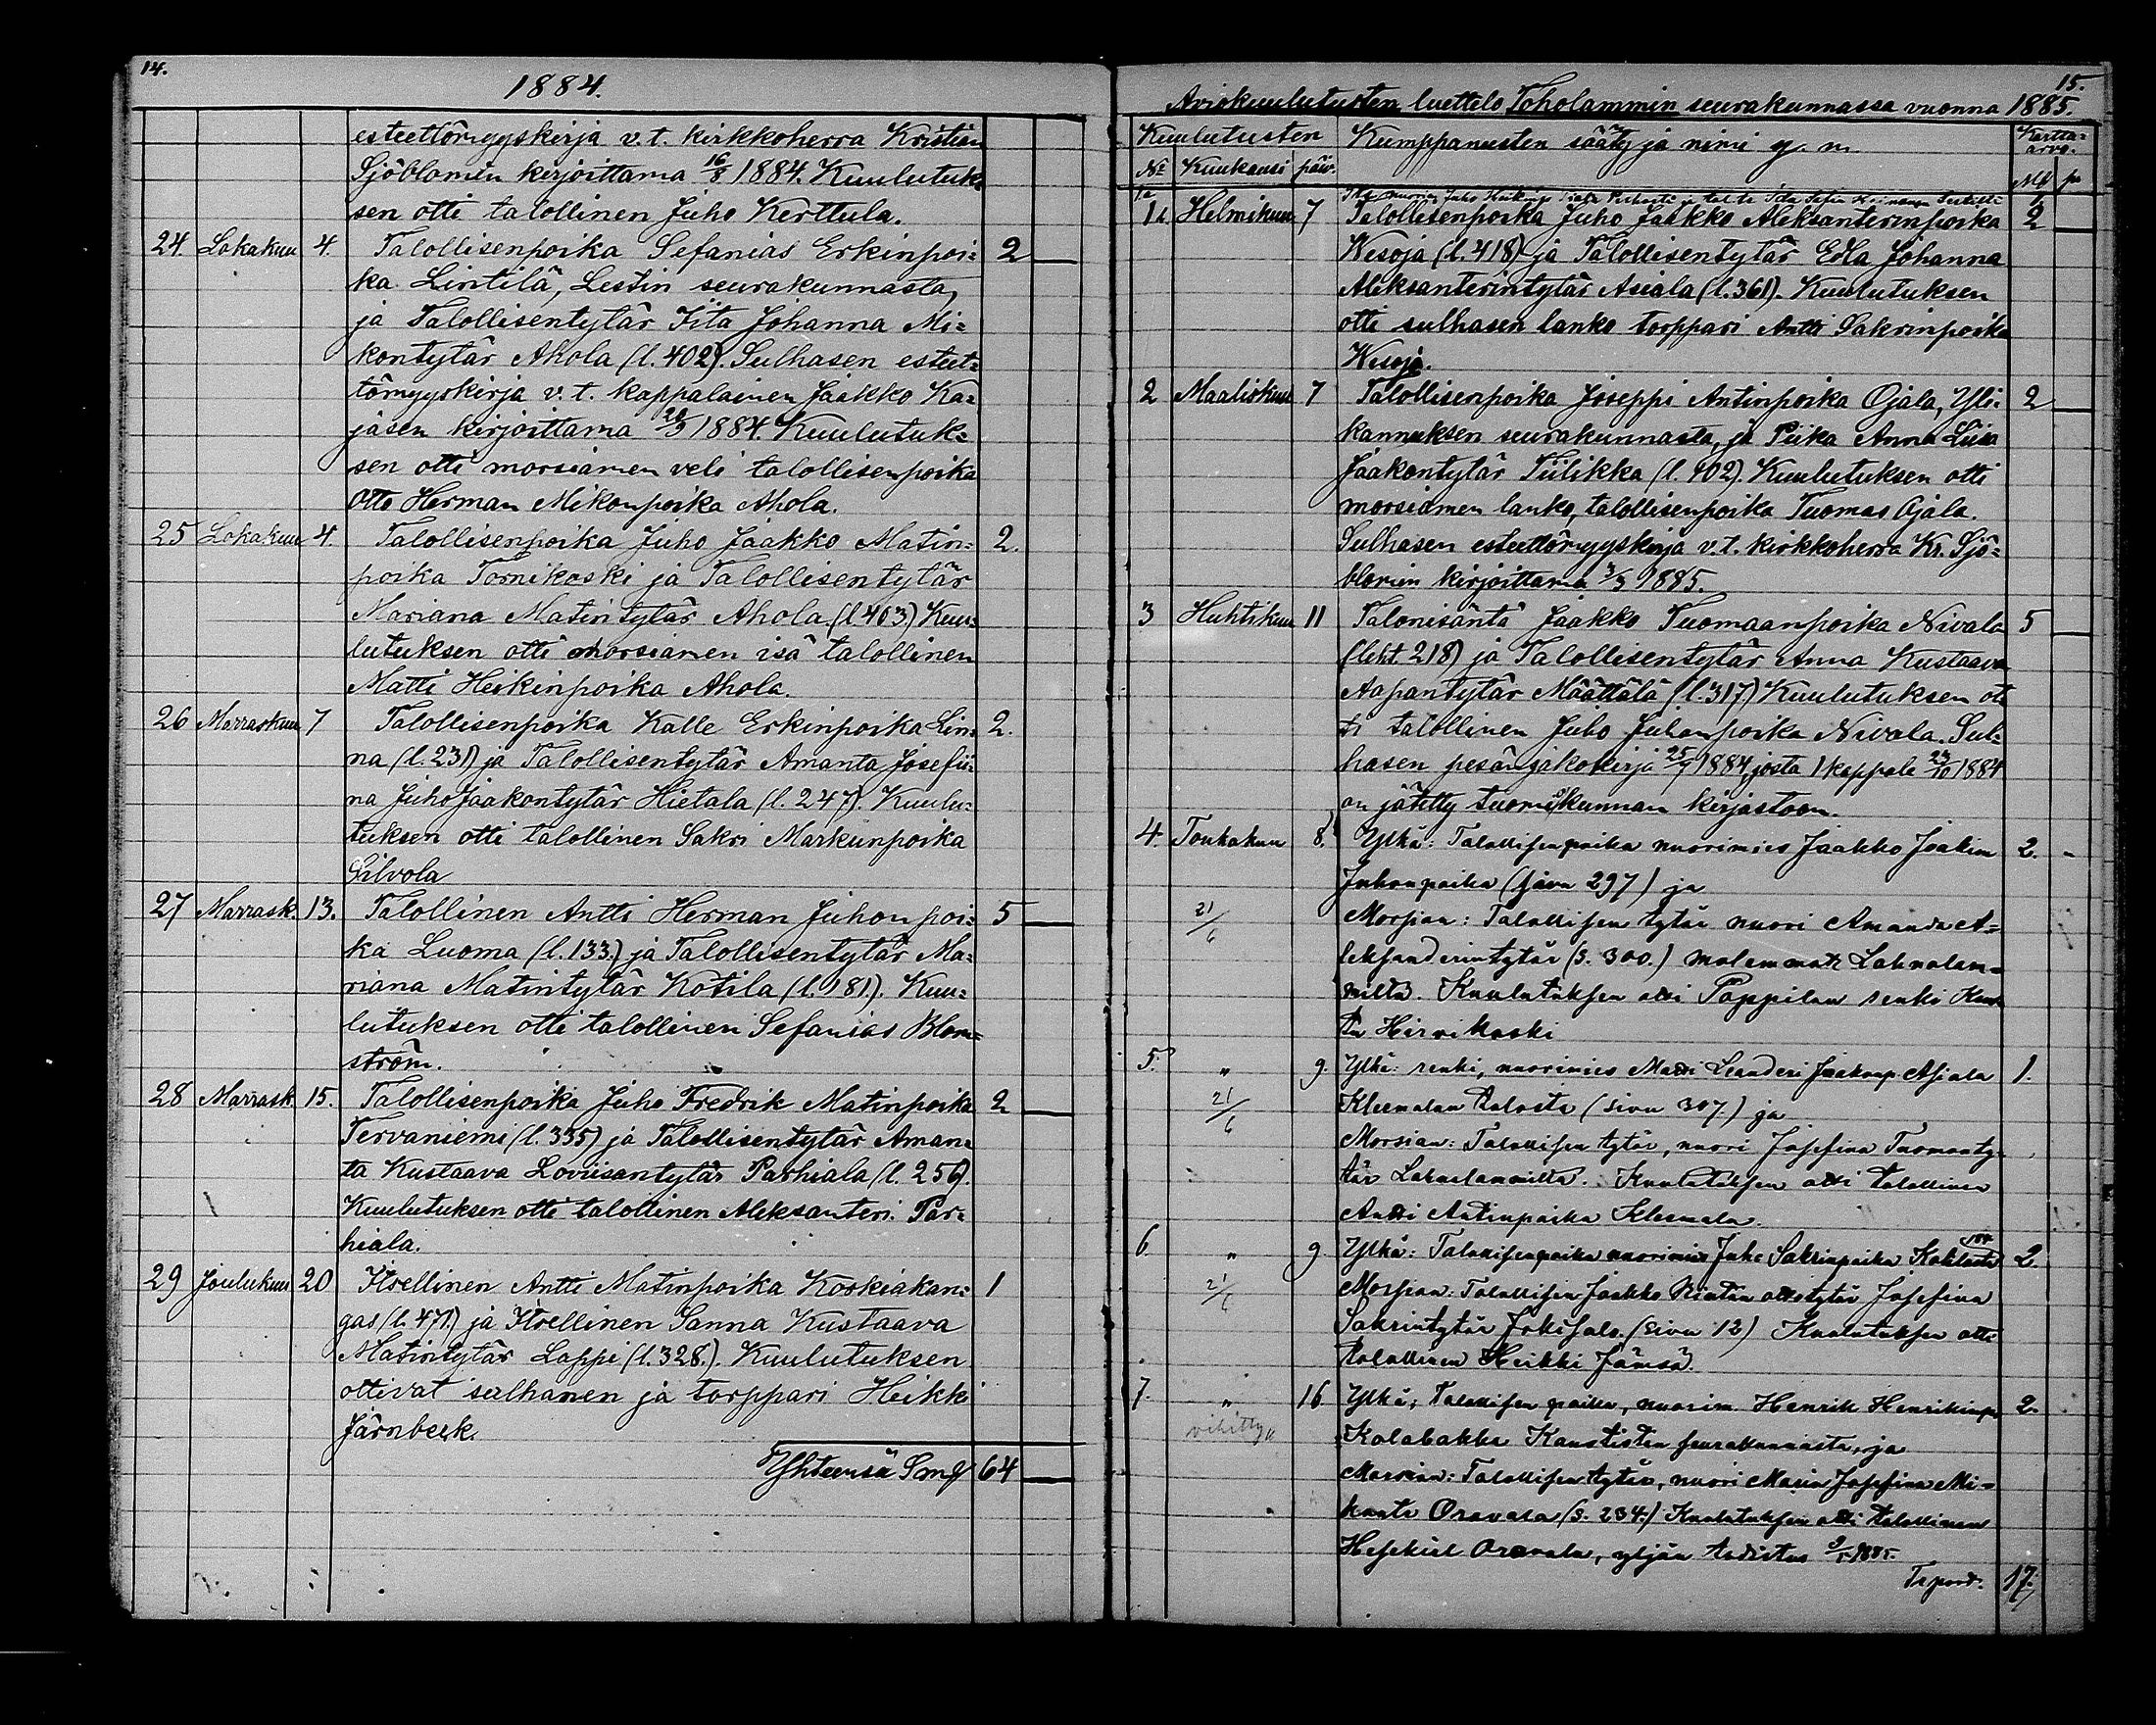 14.
1884.
esteettömyyskirja v. t. kirkkoherra Kristian
Sjöblomin kirjoittama 16/8 1884. Kuulutuk=
sen otti talollinen Juho Kerttula.
24. Lokakuu 4. Talollisenpoika Sefanias Erkinpoi= 2 —
ka Lintilä, Lestin seurakunnasta,
ja Talollisentytär Iita Johanna Mi=
kontytär Ahola (l. 402). Sulhasen esteet=
tömyyskirja v. t. kappalainen Jaakko Ka=
jasen kirjoittama 20/9 1884. Kuulutuk=
sen otti morsiamen veli talollisenpoika
Otto Herman Mikonpoika Ahola.
25 Lokakuu 4. Talollisenpoika Juho Jaakko Matin= 2.
poika Tornikoski ja Talollisentytär
Mariana Matintytär Ahola. (l 403) Kuu=
lutuksen otti morsiamen isä talollinen
Matti Heikinpoika Ahola.
26 Marraskuu 7 Talollisenpoika Kalle Erkinpoika Lin= 2.
na (l. 231) ja Talollisentytär Amanta Josefii=
na Juho Jaakontytär Hietala (l. 247). Kuulu=
tuksen otti talollinen Sakri Markunpoika
Silvola
27 Marrask. 13. Talollinen Antti Herman Juhonpoi= 5 —
ka Luoma (l. 133.) ja Talollisentytär Ma=
riana Matintytär Kotila (l. 181). Kuu=
lutuksen otti talollinen Sefanias Blom=
ström.
28 Marrask. 15. Talollisenpoika Juho Fredrik Matinpoika 2 —
Tervaniemi (l. 335) ja Talollisentytär Aman=
ta Kustaava Loviisantytär Parhiala (l. 256).
Kuulutuksen otti talollinen Aleksanteri Par=
hiala.
29 Joulukuu 20 Itsellinen Antti Matinpoika Koskiakan= 1
gas (l. 471.) ja Itsellinen Sanna Kustaava
Matintytär Lappi (l. 328.). Kuulutuksen
ottivat sulhanen ja torppari Heikki
Järnbeck.
Yhteensä Smk 64 —
15.
Aviokuulutusten luettelo Toholammin seurakunnassa vuonna 1885.
Kuulutusten Kumppanusten sääty ja nimi y. m. Kartta=
arvo.
No Kuukausi päiv. Mk p
1. Helmikuu 7 Talollisenpoika Juho Jaakko Aleksanterinpoika 2 —
Wesoja (l. 418) ja Talollisentytär Edla Johanna
Aleksanterintytär Asiala (l. 361). Kuulutuksen
otti sulhasen lanko torppari Antti Sakrinpoika
Wesoja.
2 Maaliskuu 7 Talollisenpoika Joseppi Antinpoika Ojala, Yli= 2 —
kannuksen seurakunnasta, ja Piika Anna Liisa
Jaakontytär Tiilikka (l. 402). Kuulutuksen otti
morsiamen lanko, talollisenpoika Tuomas Ojala.
Sulhasen esteettömyyskirja v. t. kirkkoherra Kr. Sjö=
blomin kirjoittama 3/3 1885.
3 Huhtikuu 11 Talonisäntä Jaakko Tuomaanpoika Nivala 5 —
(leht. 218) ja Talollisentytär Anna Kustaava
Aapantytär Määttälä (l. 317) Kuulutuksen ot
ti talollinen Juho Juhanpoika Nivala. Sul=
hasen pesänjakokirja 25/9 1884, josta 1 kappale 23/10 1884
on jätetty tuomiokunnan kirjastoon.
4. Toukokuu 8. Ylkä: Talollisenpoika nuorimies Jaakko Joakim 2. -
Juhonpoika (sivu 297) ja
21/6 Morsian: Talollisen tytär nuori Amanda A=
leksanderintytär (s. 300.) molemmat Lahnalam=
milta. Kuulutuksen otti Pappilan renki
Hirvikoski
5. " 9. Ylkä: renki, nuorimies Matti Leanderi Jaakonp Asiala 1.
21/6 Kleemolan talosta (sivu 307) ja
Morsian: Talollisen tytär, nuori Josefina Tuomanty=
tär Lahnalammilta. Kuulutuksen otti talollinen
Antti Antinpoika Kleemola.
6. " 9. Ylkä: Talollisenpoika nuorimies Juho Sakrinpoika 2
21/6 Morsian: Talollisen Jaakko ottotytär Josefina
Sakrintytär Jokisalo. (sivu 12) Kuulutuksen otti
talollinen Heikki Jämsä.
7. " 16. Ylkä: Talollisen poika, nuorim. Henrik Henrikinp 2.
vihitty Kalabakka Kaustisten seurakunnasta, ja
Morsian: Talollisen tytär, nuori Maria Josefina Mi=
kont. Oravala (s. 234.) Kuulutuksen otti talollinen
Hesekiel Oravala, yljän todistus 9/5 1885.
Transport. 17.